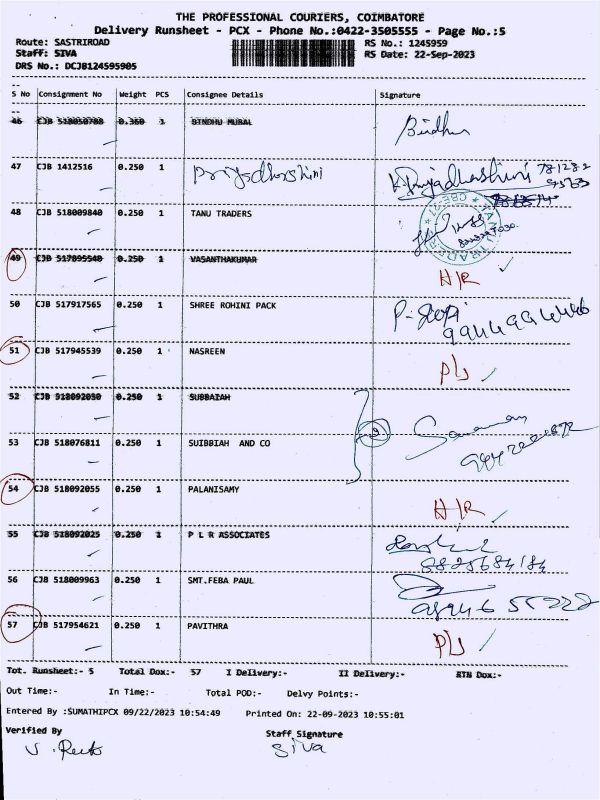 THE PROFESSIONAL COURIERS, COIMBATORE
Delivery Runsheet - PCX - Phone No.:0422-3505555 - Page No.:5
Route: SASTRIROAD RS No.: 1245959
Staff: SIVA RS Date: 22-Sep-2023
DRS No.: DCJB124595905
S No Consignment No Weight PCS Consignee Details Signature
46 CJB 518050788 0.360 1 BINDHU MUBAL Bindhu
47 CJB 1412516 0.250 1 Priyadharshini K. Priyadharshini
48 CJB 518009840 0.250 1 TANU TRADERS
49 CJB 517895540 0.250 1 VASANTHAKUMAR H/R
50 CJB 517917565 0.250 1 SHREE ROHINI PACK P. Gopi
51 CJB 517945539 0.250 1 NASREEN P/J
52 CJB 518092030 0.250 1 SUBBAIAH
53 CJB 518076811 0.250 1 SUIBBIAH AND CO
54 CJB 518092055 0.250 1 PALANISAMY H/R
55 CJB 518092025 0.250 1 P L R ASSOCIATES
8825684184
56 CJB 518009963 0.250 1 SMT.FEBA PAUL
57 CJB 517954621 0.250 1 PAVITHRA P/J
Tot. Runsheet:- 5 Total Dox:- 57 I Delivery:- II Delivery:- RTN Dox:-
Out Time:- In Time:- Total POD:- Delvy Points:-
Entered By :SUMATHIPCX 09/22/2023 10:54:49 Printed On: 22-09-2023 10:55:01
Verified By Staff Signature
Siva